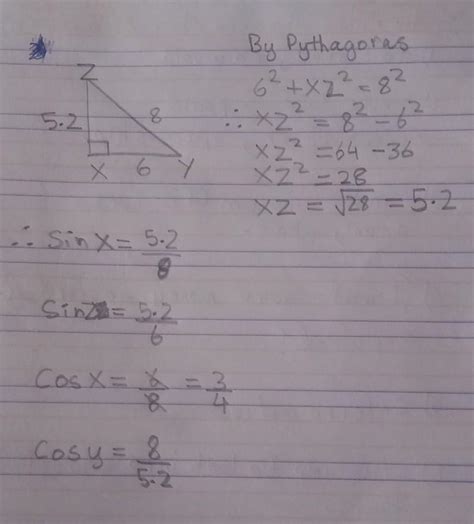 By Pythagoras
6² + XZ² = 8²
∴ XZ² = 8² - 6²
XZ² = 64 - 36
XZ² = 28
XZ = √28 = 5.2
Z
5.2
8
X
6
Y
∴ Sin X = 5.2/8
Sin Z = 5.2/6
Cos X = 6/8 = 3/4
Cos y = 8/5.2